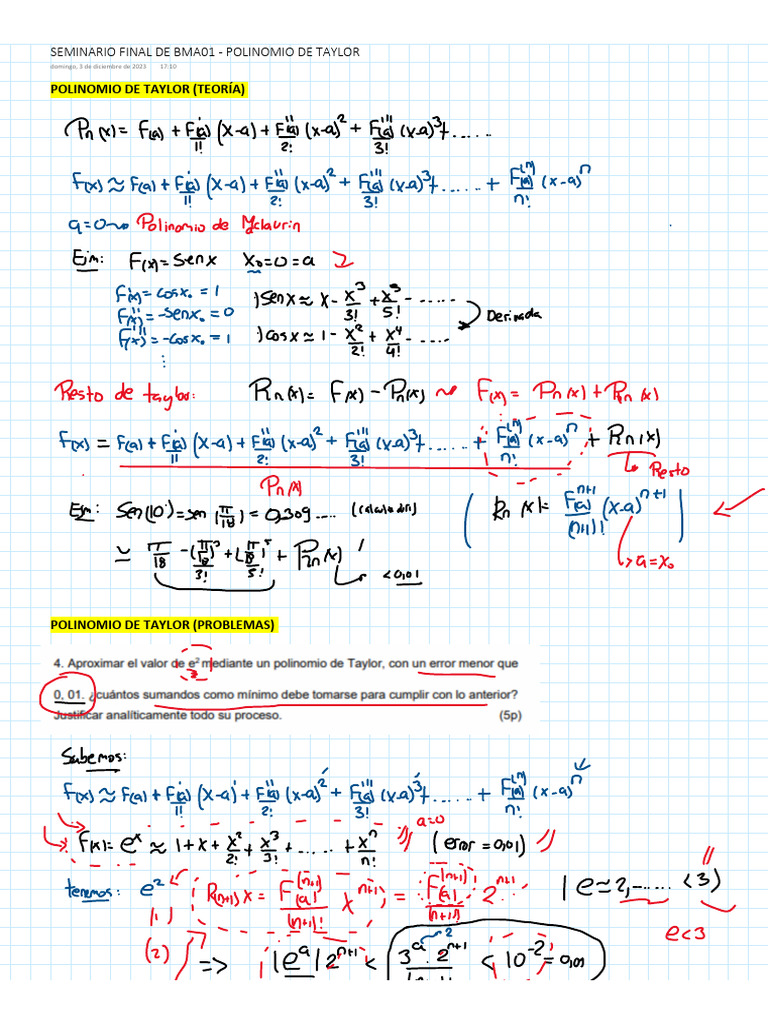 SEMINARIO FINAL DE BMA01 - POLINOMIO DE TAYLOR
domingo, 3 de diciembre de 2023 17:10
POLINOMIO DE TAYLOR (TEORÍA)
Pn(x) = F(a) + F'(a)/1! (x-a) + F''(a)/2! (x-a)² + F'''(a)/3! (x-a)³ + ......
F(x) ≈ F(a) + F'(a)/1! (x-a) + F''(a)/2! (x-a)² + F'''(a)/3! (x-a)³ + ...... + F⁽ⁿ⁾(a)/n! (x-a)ⁿ
a=0 ⇝ Polinomio de Mclaurin
Ejm: F(x) = Senx x₀=0=a
F'(x) = cosx₀ = 1
F''(x) = -senx₀ = 0
F'''(x) = -cosx₀ = 1
⋮
·) Senx ≈ x - x³/3! + x⁵/5! - ......
·) cosx ≈ 1 - x²/2! + x⁴/4! - ......
Derivada
Resto de taylor: Rn(x) = F(x) - Pn(x) ⇝ F(x) = Pn(x) + Rn(x)
F(x) = F(a) + F'(a)/1! (x-a) + F''(a)/2! (x-a)² + F'''(a)/3! (x-a)³ + ...... + F⁽ⁿ⁾(a)/n! (x-a)ⁿ + Rn(x)
Resto
Pn(x)
Ejm: Sen(10°) = sen(π/18) = 0,309.... (calculadora)
≃ π/18 - (π/18)³/3! + (π/18)⁵/5! + Rn(x)
<0,01
Rn(x) = Fⁿ⁺¹(a)/(n+1)! (x-a)ⁿ⁺¹
a=x₀
POLINOMIO DE TAYLOR (PROBLEMAS)
4. Aproximar el valor de e² mediante un polinomio de Taylor, con un error menor que
0, 01. ¿cuántos sumandos como mínimo debe tomarse para cumplir con lo anterior?
Justificar analíticamente todo su proceso. (5p)
Sabemos:
F(x) ≈ F(a) + F'(a)/1! (x-a)¹ + F''(a)/2! (x-a)² + F'''(a)/3! (x-a)³ + ...... + F⁽ⁿ⁾(a)/n! (x-a)ⁿ
a=0
F(x) = eˣ ≈ 1 + x + x²/2! + x³/3! + ..... + xⁿ/n! (error = 0,01)
tenemos: e² R(n+1)x = F⁽ⁿ⁺¹⁾(a)/(n+1)! xⁿ⁺¹ = F⁽ⁿ⁺¹⁾(a)/(n+1)! 2ⁿ⁺¹ | e ≈ 2,...... <3)
(1)
e<3
(2)
=> |eᵃ| 2ⁿ⁺¹ < 3ᵃ·2ⁿ⁺¹ < 10⁻² = 0,01
2